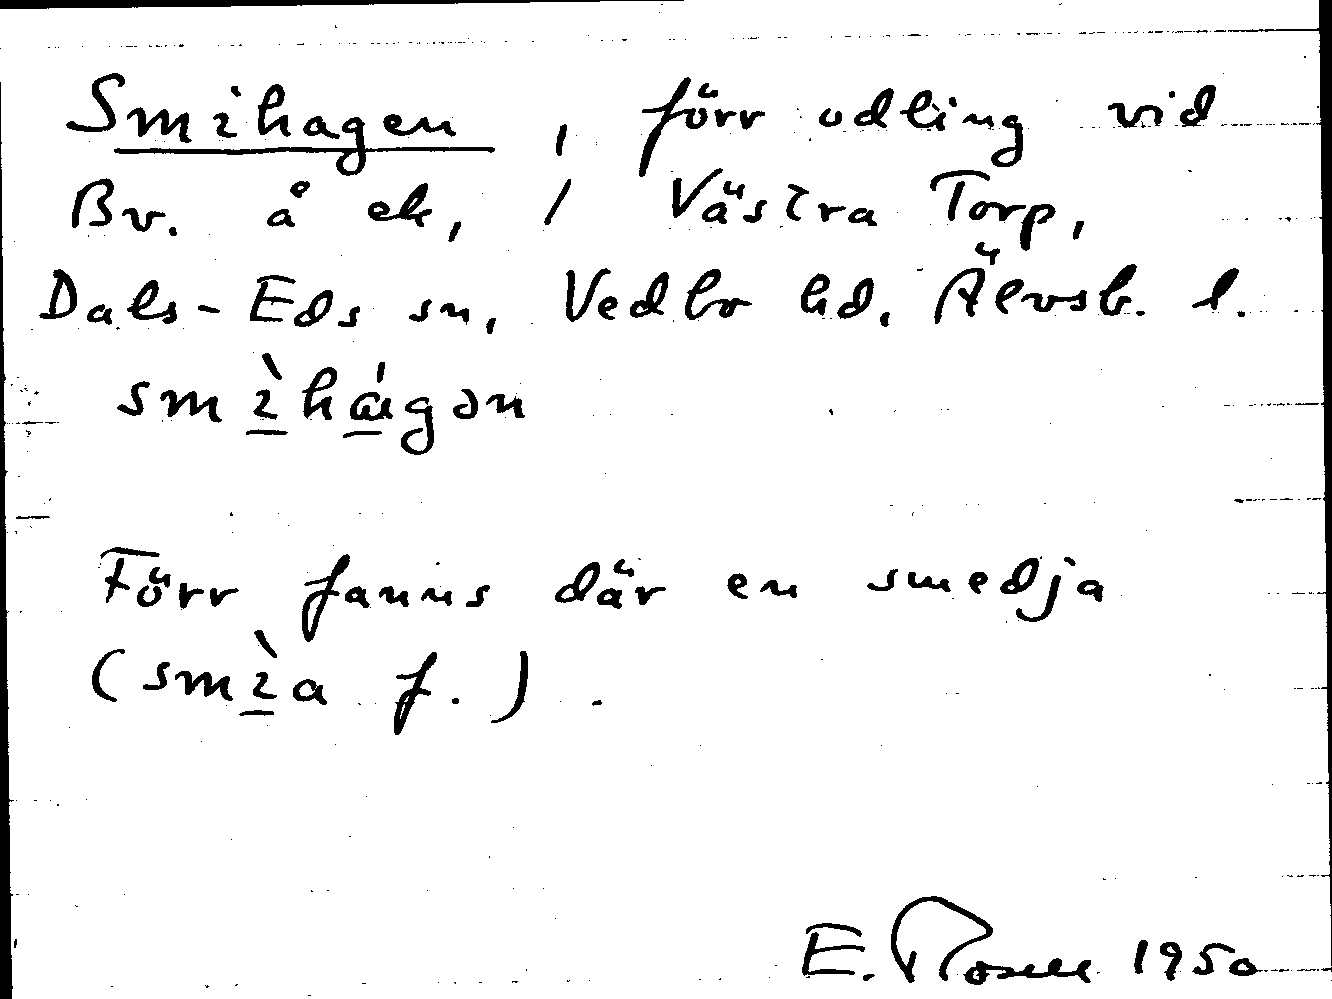 Smihagen, förr odling vid
Bv. å ek, / Västra Torp,
Dals-Eds sn, Vedbo hd. Älvsb. l.
smìhágən
Förr fanns där en smedja
(smìa f.).
E. Rosell 1950